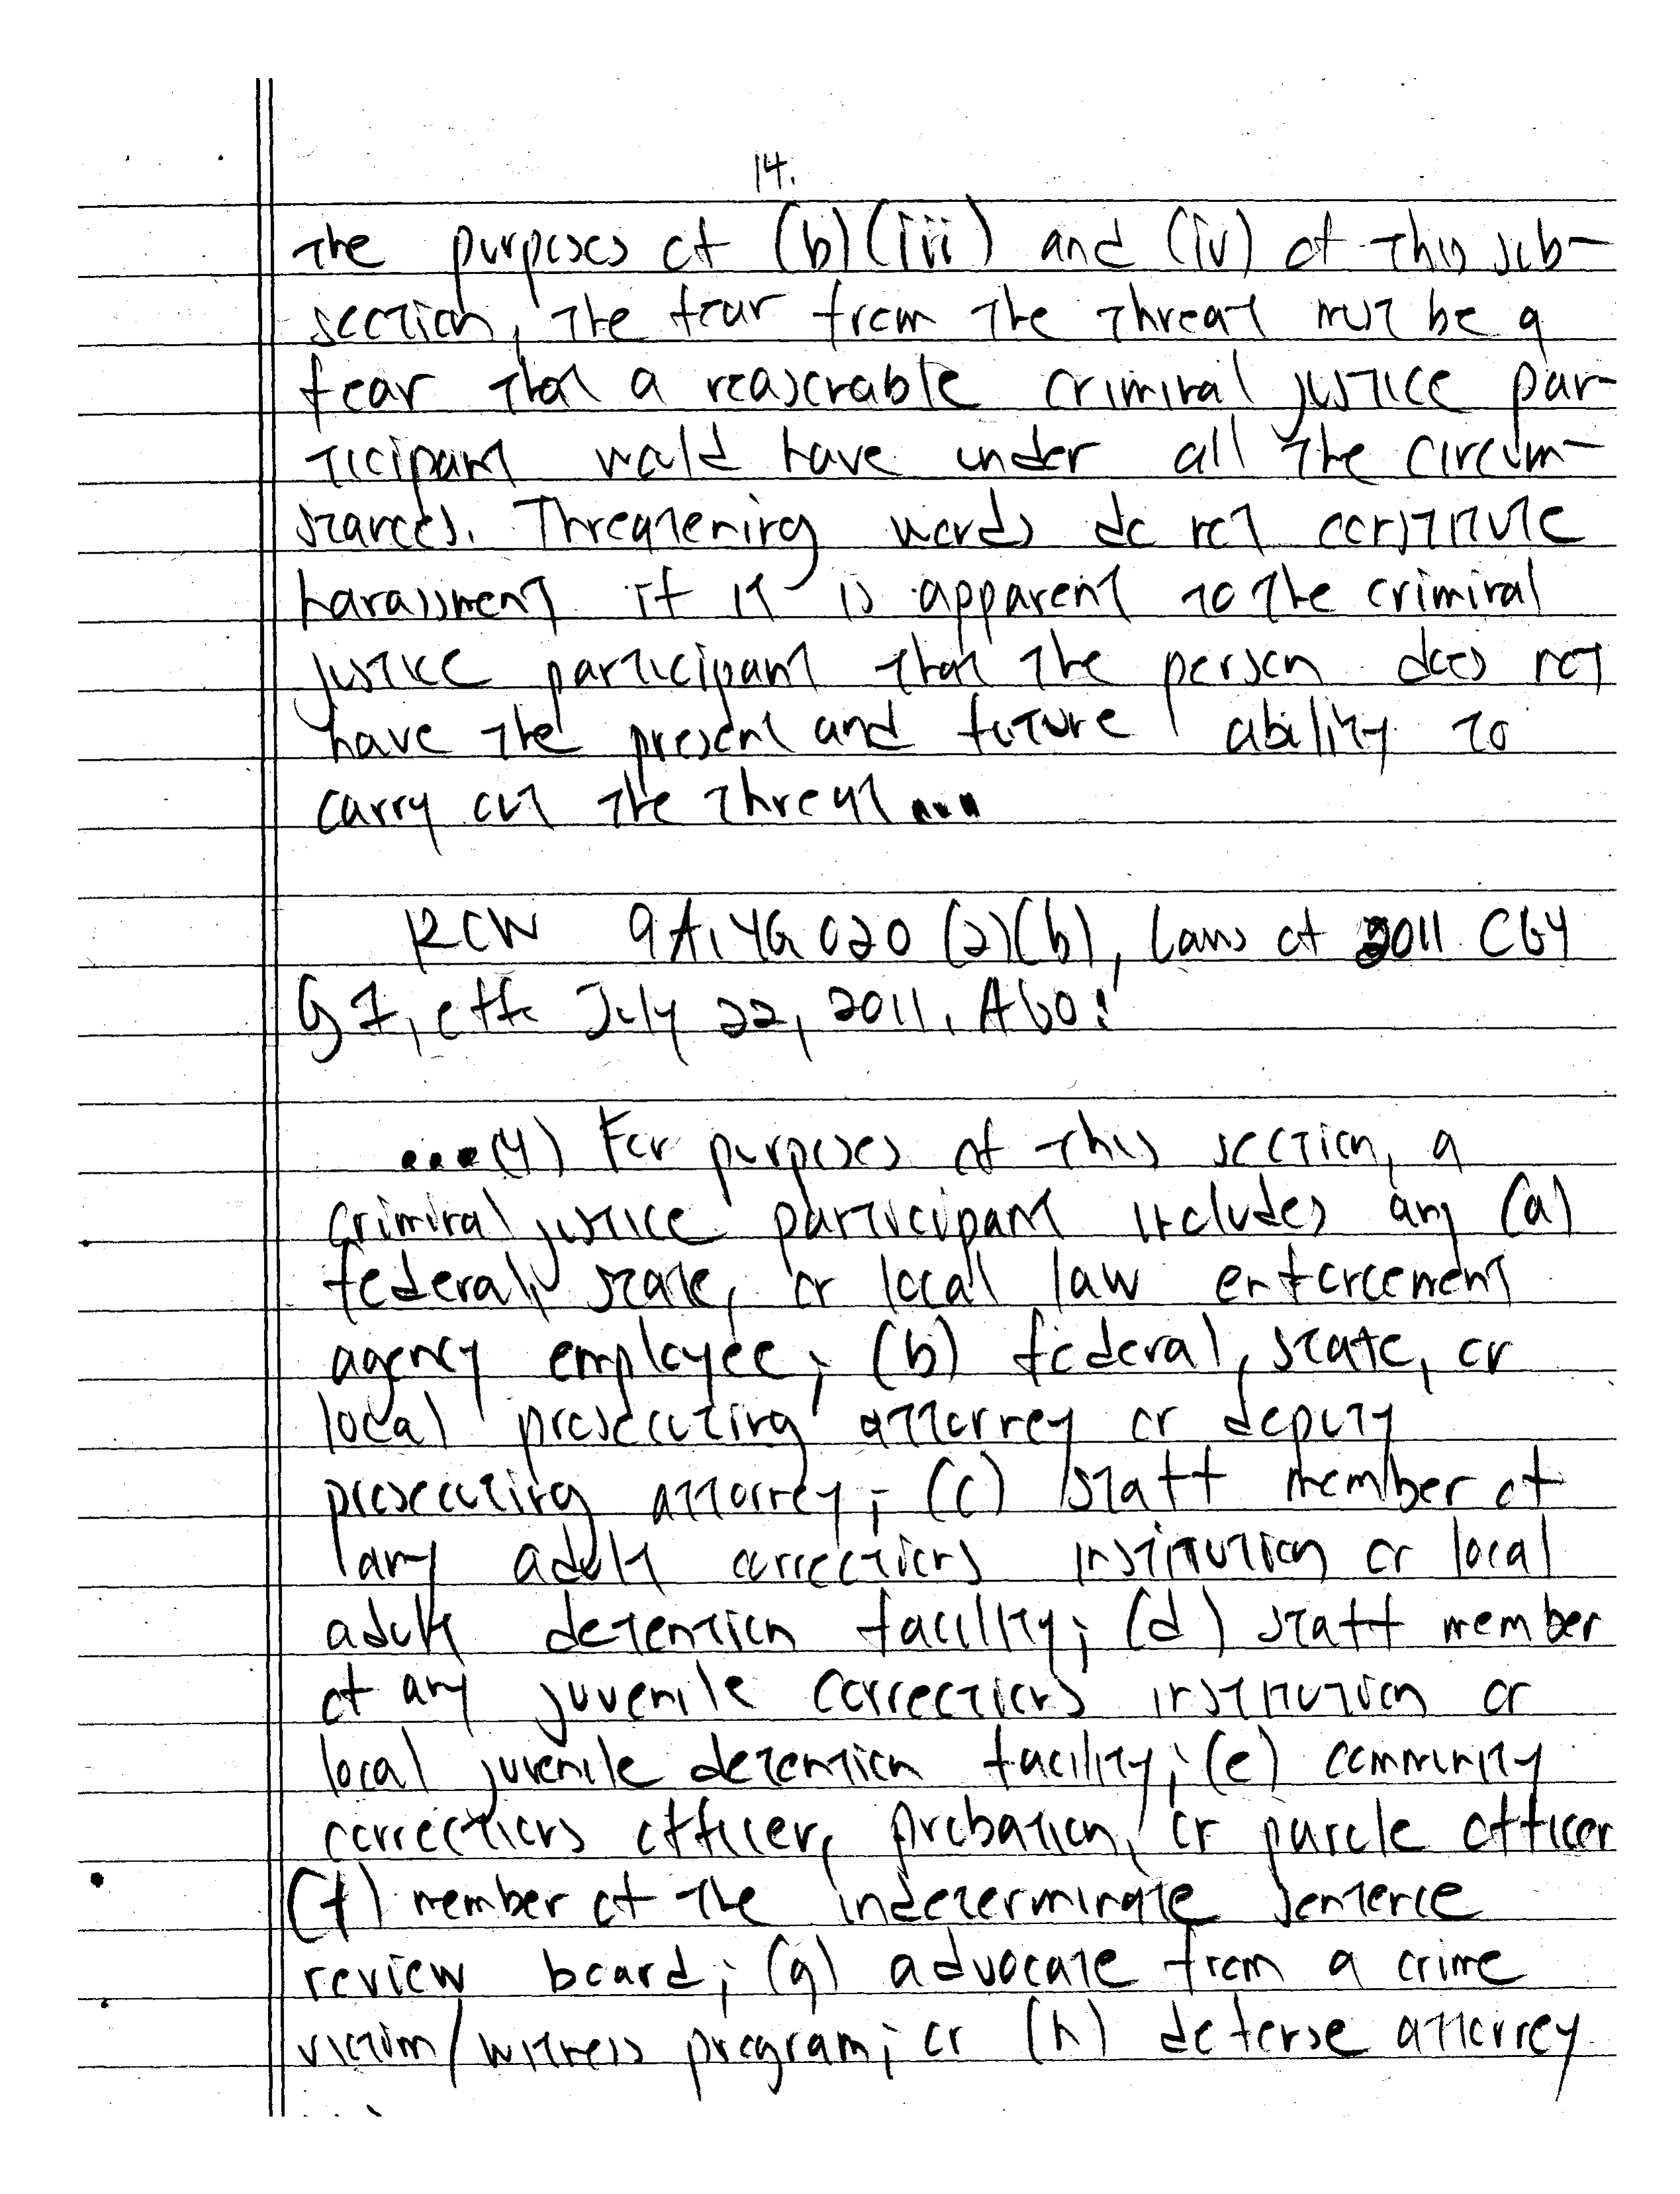 14.
the purposes of (b)(iii) and (iv) of this sub-
section, the fear from the threat must be a
fear that a reasonable criminal justice par-
ticipant would have under all the circum-
stances. Threatening words do not constitute
harassment if it is apparent to the criminal
justice participant that the person does not
have the present and future ability to
carry out the threat...
RCW 9A.46.020 (2)(b), Laws of 2011 C64
§ 1, eff. July 22, 2011. Also:
...(4) For purposes of this section, a
criminal justice participant includes any (a)
federal, state, or local law enforcement
agency employee; (b) federal, state, or
local prosecuting attorney or deputy
prosecuting attorney; (c) staff member of
any adult corrections institution or local
adult detention facility; (d) staff member
of any juvenile corrections institution or
local juvenile detention facility; (e) community
corrections officer, probation, or parole officer
(f) member of the indeterminate sentence
review board; (g) advocate from a crime
victim/witness program; or (h) defense attorney